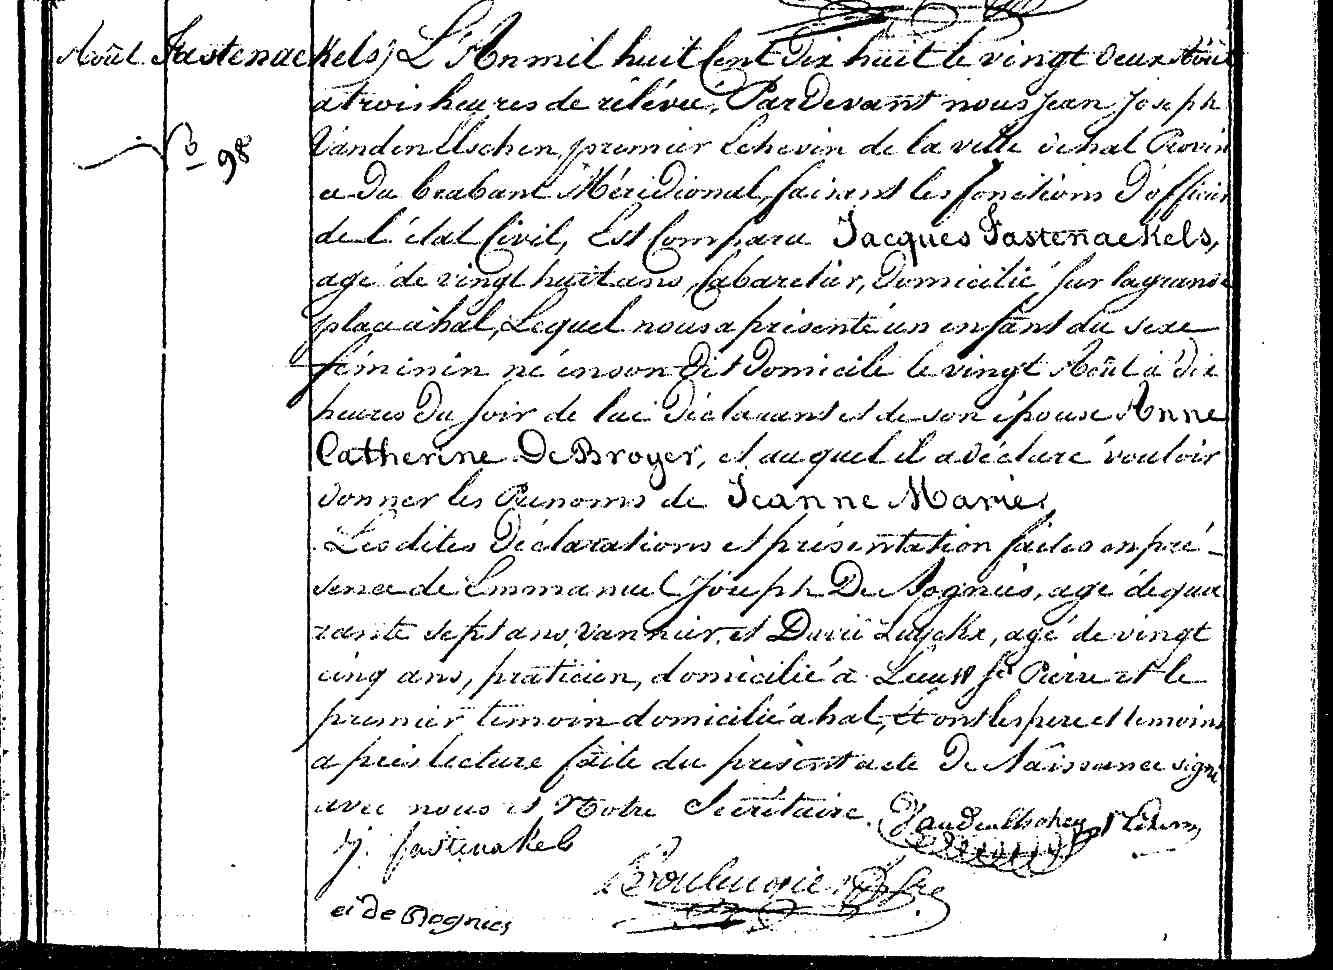 Août. Fastenaekels, L'An mil huit Cent Dix huit le vingt deux Août
a trois heures de rélévée, Par Devant nous Jean Joseph
N° 98
Vanden Elschen premier Echevin de la ville de hal Provin
ce Du brabant Méridional, faisant les fonctions D'officier
de L'état Civil, Est Comparu Jacques Fastenaekels,
agé de vingt huit ans, Cabaretier, Domicilié sur la grande
place a hal, Lequel nous a présenté un enfant du sexe
féminin né en son Dit Domicile le vingt Août à dix
heures Du soir de lui Déclarant et de son épouse Anne
Catherine De Broyer, et auquel il a déclaré vouloir
donner les Prenoms de Jeanne Marie,
Les dites Déclarations et présentation faites en pré-
sence de Emmanuel Joseph De Sognies, agé de qua
rante sept ans, vannier, et David Luyckx, agé de vingt
cinq ans, praticien, domicilié à Leeuw St Pierre et le
premier temoin domicilié a hal, Et ont les pere et temoins
après lecture faite du présent acte De Naissance signé
avec nous et Notre Secrétaire.
Vandenelschen
j. fastenakels
ei de Sognies